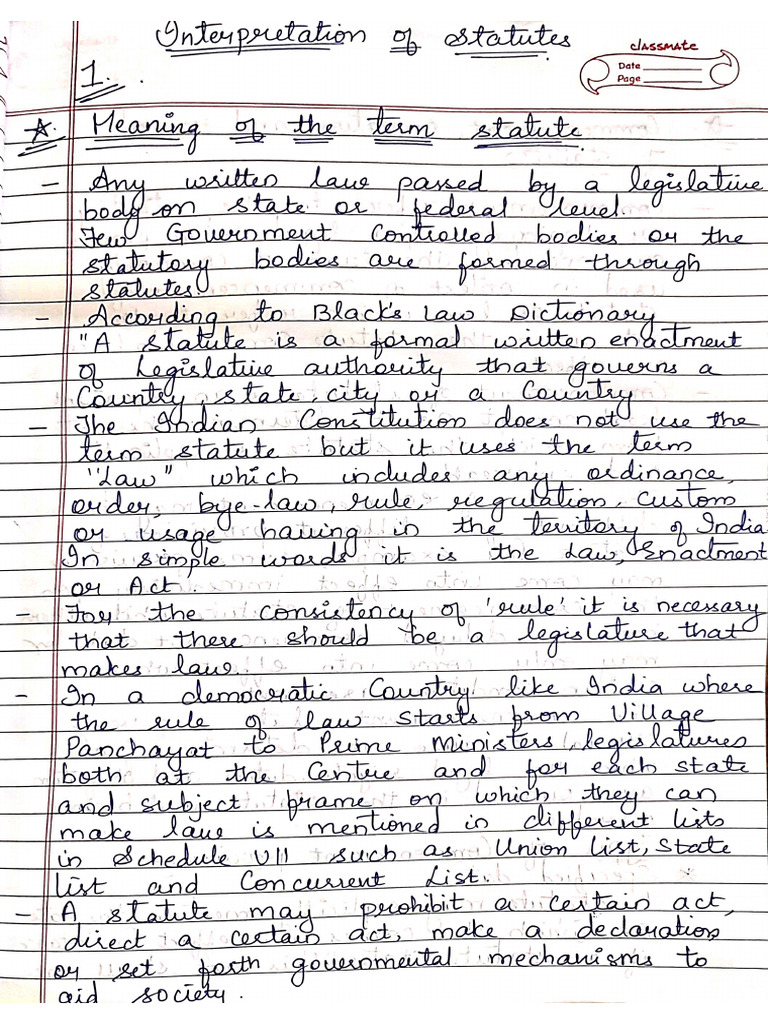 Interpretation of Statutes
classmate
Date
Page
1.
Meaning of the term statute.
- Any written law passed by a legislative
body on state or federal level.
Few Government Controlled bodies or the
statutory bodies are formed through
statutes.
- According to Black's Law Dictionary
"A statute is a formal written enactment
of Legislative authority that governs a
Country, state, city or a Country
- The Indian Constitution does not use the
term statute but it uses the term
"Law" which includes any ordinance,
order, bye-law, rule, regulation, custom
or usage having in the territory of India
In simple words it is the Law, Enactment
or Act.
- For the consistency of 'rule' it is necessary
that there should be a legislature that
makes law.
- In a democratic Country like India where
the rule of law starts from Village
Panchayat to Prime Ministers, legislatures
both at the Centre and for each state
and subject frame on which they can
make law is mentioned in different lists
in Schedule VII such as Union List, State
list and Concurrent List.
- A statute may prohibit a certain act,
direct a certain act, make a declaration,
or set forth governmental mechanisms to
aid society.